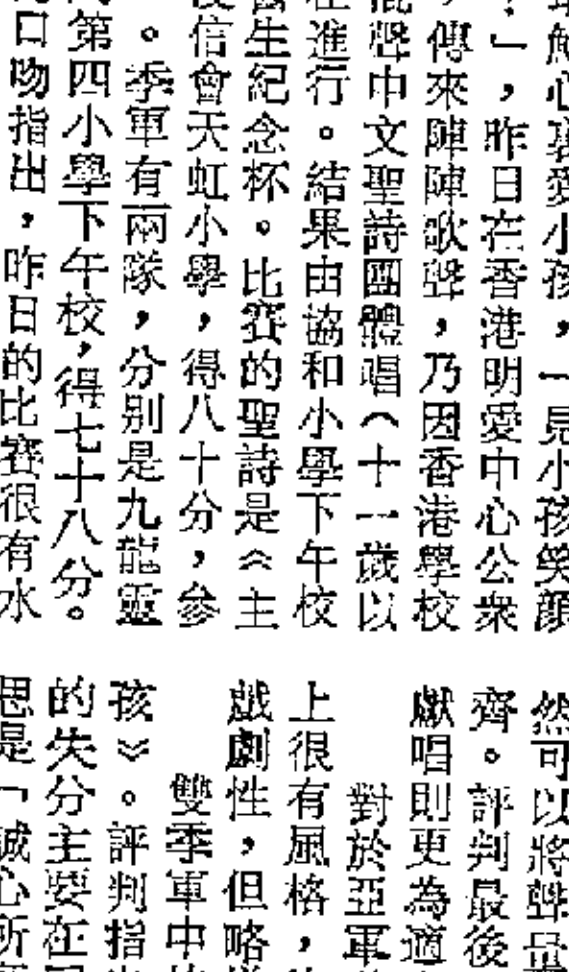 最觸心裏愛小孩，一見小孩笑顏
？」，昨日在香港明愛中心公衆
，傳來陣陣歌聲，乃因香港學校
混聲中文聖詩團體唱（十一歲以
在進行。結果由協和小學下午校
醫生紀念杯。比賽的聖詩是《主
浸信會天虹小學，得八十分，參
。季軍有兩隊，分別是九龍靈
第四小學下午校，得七十八分。
口吻指出，昨日的比賽很有水
然可以將聲量
齊。評判最後
獻唱則更為適
對於亞軍
上很有風格，
戲劇性，但略
雙季軍中
孩》。評判指
的失分主要在
思是「誠心所